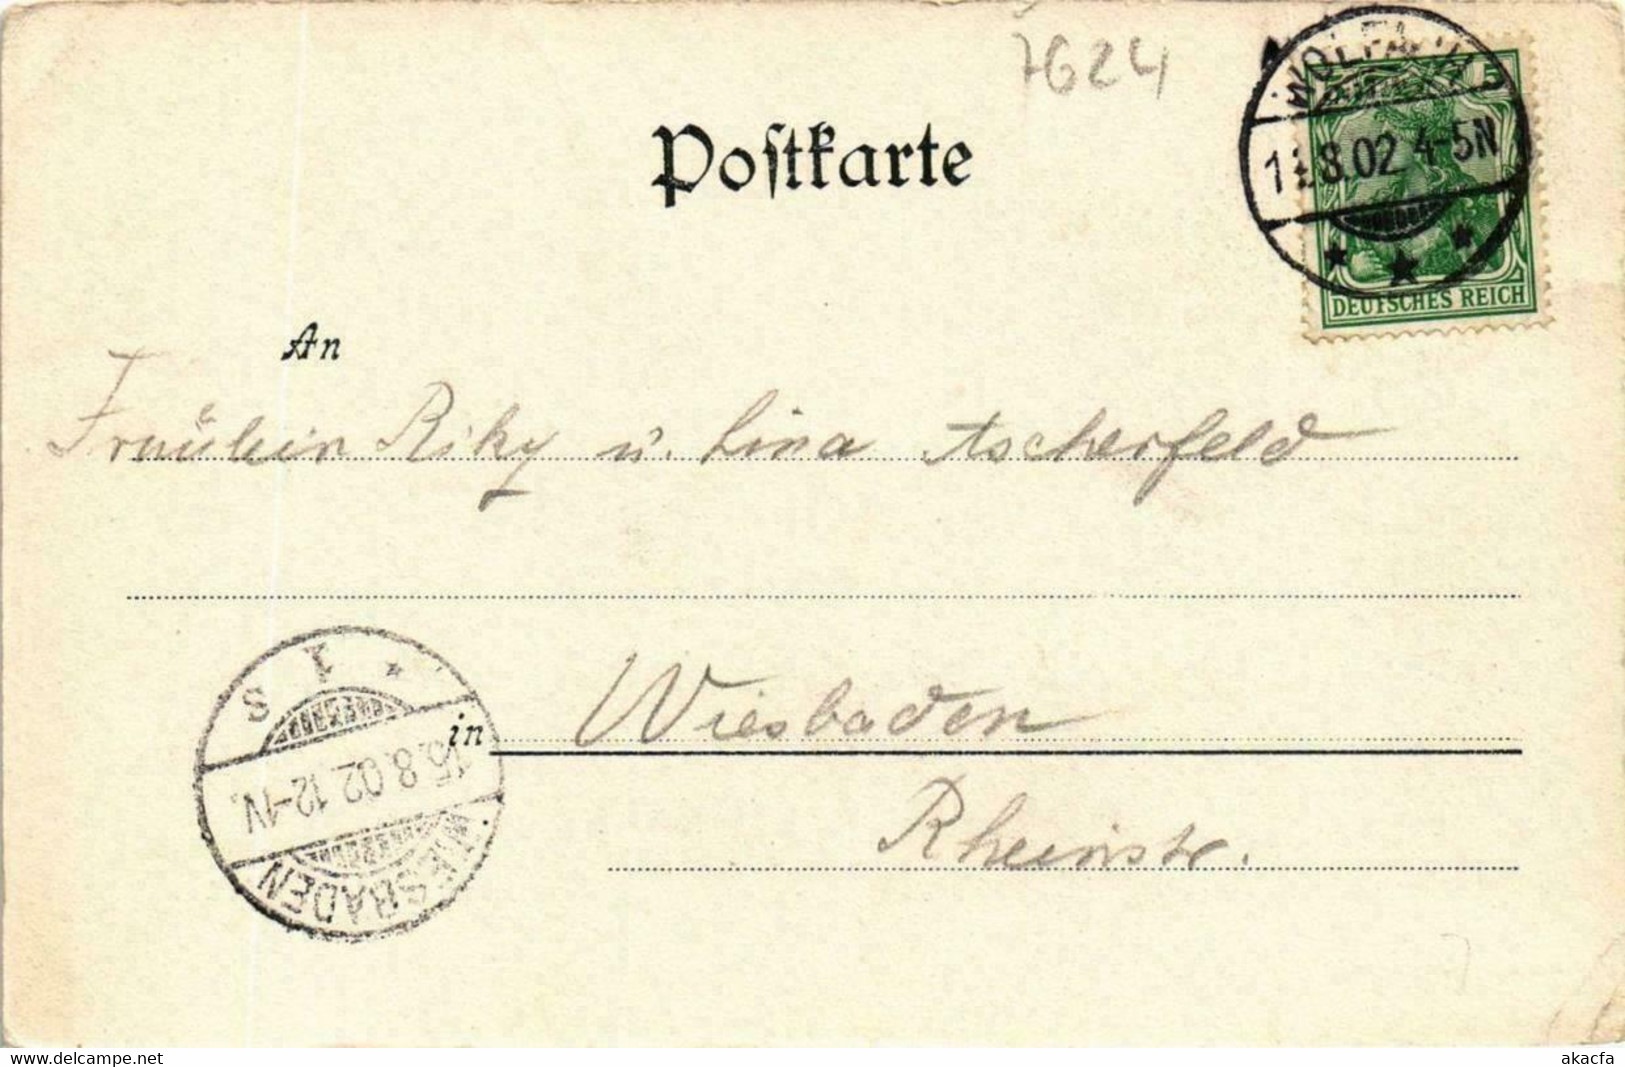 7624
Postkarte
WOLFACH
8.02 4-5N
5
DEUTSCHES REICH
An
Fräulein Riky u. Lina Ascherfeld
in Wiesbaden
Rheinstr.
WIESBADEN
15.8.02.12-1V.
1 S
www.delcampe.net
akacfa